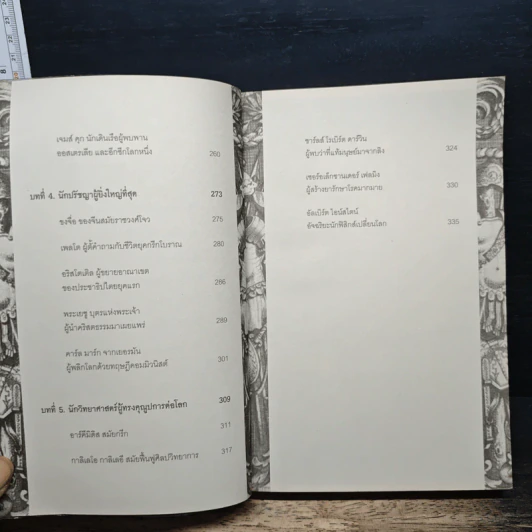 เจมส์ คุก นักเดินเรือผู้พบพาน
ออสเตรเลีย และอีกซีกโลกหนึ่ง 260
บทที่ 4. นักปรัชญาผู้ยิ่งใหญ่ที่สุด 273
ขงจื่อ ของจีนสมัยราชวงศ์โจว 275
เพลโต ผู้ตั้คำถามกับชีวิตยุคกรีกโบราณ 280
อริสโตเติล ผู้ขยายอาณาเขต
ของประชาธิปไตยยุคแรก 286
พระเยซู บุตรแห่งพระเจ้า
ผู้นำคริสตธรรมมาเผยแพร่ 289
คาร์ล มาร์ก จากเยอรมัน
ผู้พลิกโลกด้วยทฤษฎีคอมมิวนิสต์ 301
บทที่ 5. นักวิทยาศาสตร์ผู้ทรงคุณูปการต่อโลก 309
อาร์คิมิดิส สมัยกรีก 311
กาลิเลโอ กาลิเลอี สมัยฟื้นฟูศิลปวิทยาการ 317
ชาร์ลส์ โรเบิร์ต ดาร์วิน
ผู้พบว่าที่แท้มนุษย์มาจากลิง 324
เซอร์อเล็กซานเดอร์ เฟลมิง
ผู้สร้างยารักษาโรคมากมาย 330
อัลเบิร์ต ไอน์สไตน์
อัจฉริยะนักฟิสิกส์เปลี่ยนโลก 335